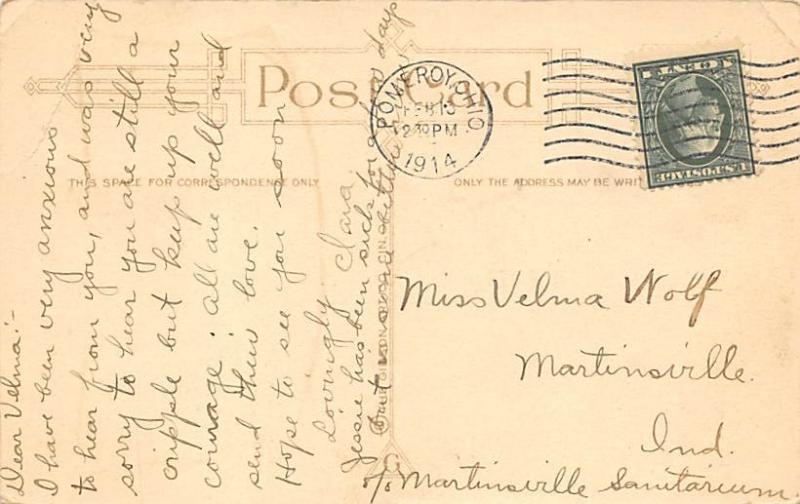 Post Card
THIS SPACE FOR CORRESPONDENCE ONLY
ONLY THE ADDRESS MAY BE WRIT
POMEROY, OHIO
FEB 13
2 PM
1914
U.S. POSTAGE
Dear Velma:-
I have been very anxious
to hear from you, and was very
sorry to hear you are still a
cripple but keep up your
courage. All are well and
send their love.
Hope to see you soon
Lovingly Clara.
Jessie has been sick for a few days
but some better
Miss Velma Wolf
Martinsville.
Ind.
c/o Martinsville Sanitarium
G